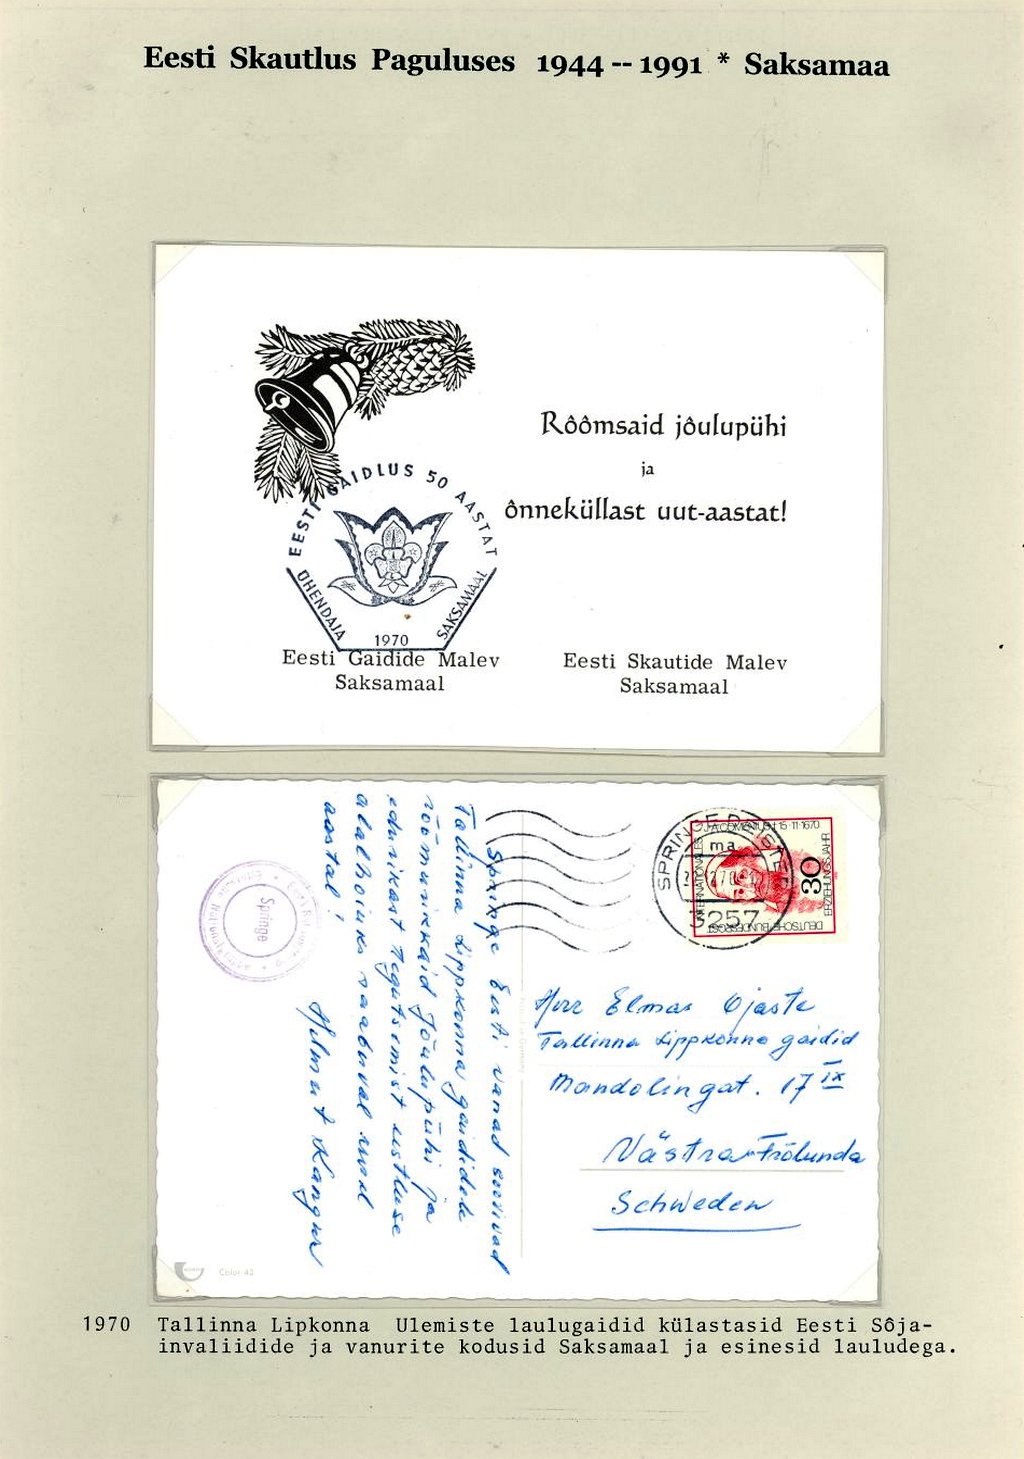 Eesti Skautlus Paguluses 1944 -- 1991 * Saksamaa
Rôômsaid jôulupühi
ja
ônneküllast uut-aastat!
EESTI GAIDLUS 50 AASTAT
ÜHENDAJA
1970
SAKSAMAAL
Eesti Gaidide Malev
Saksamaal
Eesti Skautide Malev
Saksamaal
Springe Eesti vanad soovivad
Tallinna Lippkonna gaididele
rõõmurikkaid Jõulupühi ja
edurikast tegutsemist eestluse
alalhoiuks saabuval uuel
aastal!
Hilmut Kangur
Springe
SPRINGE DEISTER
ma
3257
J·A·COMENIUS † 15·11·1670
INTERNATIONALES
ERZIEHUNGSJAHR
30
DEUTSCHE BUNDESPOST
Herr Elmar Ojaste
Tallinna Lippkonna gaidid
Mandolingat. 17 IX
Västra-Frölunda
Schweden
Color 42
1970 Tallinna Lipkonna Ulemiste laulugaidid külastasid Eesti Sôja-
invaliidide ja vanurite kodusid Saksamaal ja esinesid lauludega.